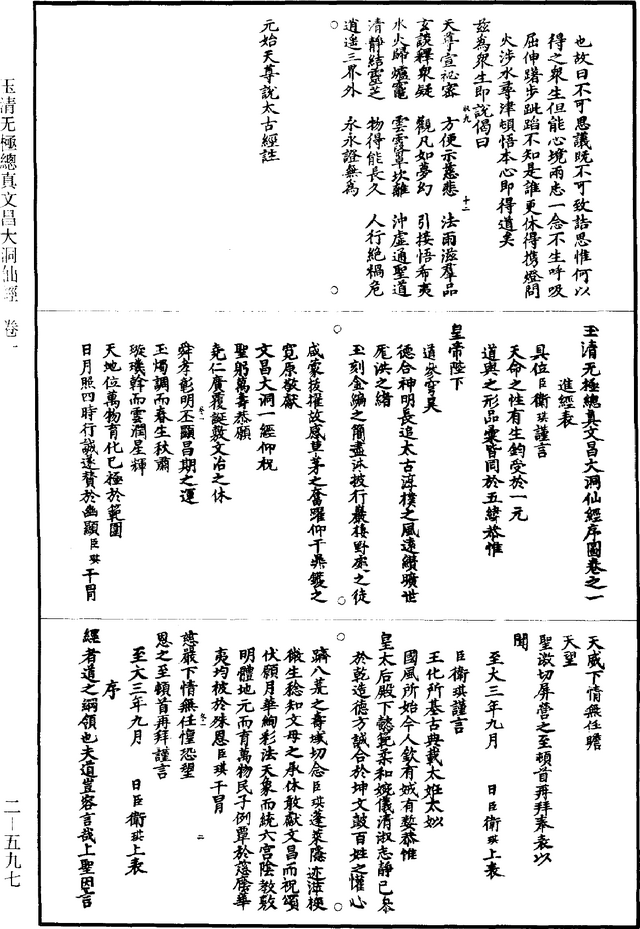 也故曰不可思議既不可致詰思惟何以
得之衆生但能心境兩忘一念不生呼吸
屈伸踏步跳蹈不知是誰更休得携燈問
火涉水尋津頓悟本心即得道矣
兹為衆生即說偈曰
天尊宣祕密　方便示慈悲　法雨滋羣品
玄談釋衆疑　觀凡如夢幻　引接悟希夷
水火歸爐竈　雲雷罩坎離　沖虛通聖道
清靜結靈芝　物得能長久　人行絕禍危
逍遥三界外　永永證無為
元始天尊說太古經註
玉清无極總真文昌大洞仙經序圖卷之一
進經表
具位臣衛琪謹言
天命之性有生鈞受於一元
道與之形品彙皆同於五緯恭惟
皇帝陛下
道參穹昊
德合神明長追太古淳樸之風遠纘曠世
厖洪之緒
玉刻金編之簡盡沐披行巖棲野處之徒
咸蒙拔擢故感草茅之奮躍仰干吳鑊之
寬原敬獻
文昌大洞一經仰祝
聖躬萬壽恭願
堯仁廣覆誕敷文治之休
舜孝彰明丕顯昌期之運
玉燭調而春生秋肅
璇璣幹而雲潤星輝
天地位萬物育化已極於範圍
日月照四時行誠遂贊於幽顯臣琪干冒
天威下情無任瞻
天望
聖激切屏營之至頓首再拜奉表以
聞
至大三年九月　日臣衛琪上表
臣衛琪謹言
王化所基古典載太姙太姒
國風所始今人欽有娀有㜪恭惟
皇太后殿下懿範柔和婉儀清淑志靜已參
於乾造德方誠合於坤文鼓百姓之懽心
躋八荒之壽域切念臣琪蓬萊隱迹漳挾
微生稔知文母之承休敢獻文昌而祝頌
伏願月華絢彩法天象而統六宮陰教敷
明體地元而育萬物民子例覃於蔭庥華
夷均被於殊恩臣琪干冒
慈嚴下情無任惶恐望
恩之至頓首再拜謹言
至大三年九月　日臣衛琪上表
序
經者道之綱領也夫道豈容言哉上聖因言
玉清无極總真文昌大洞仙經　卷一
二―五九七